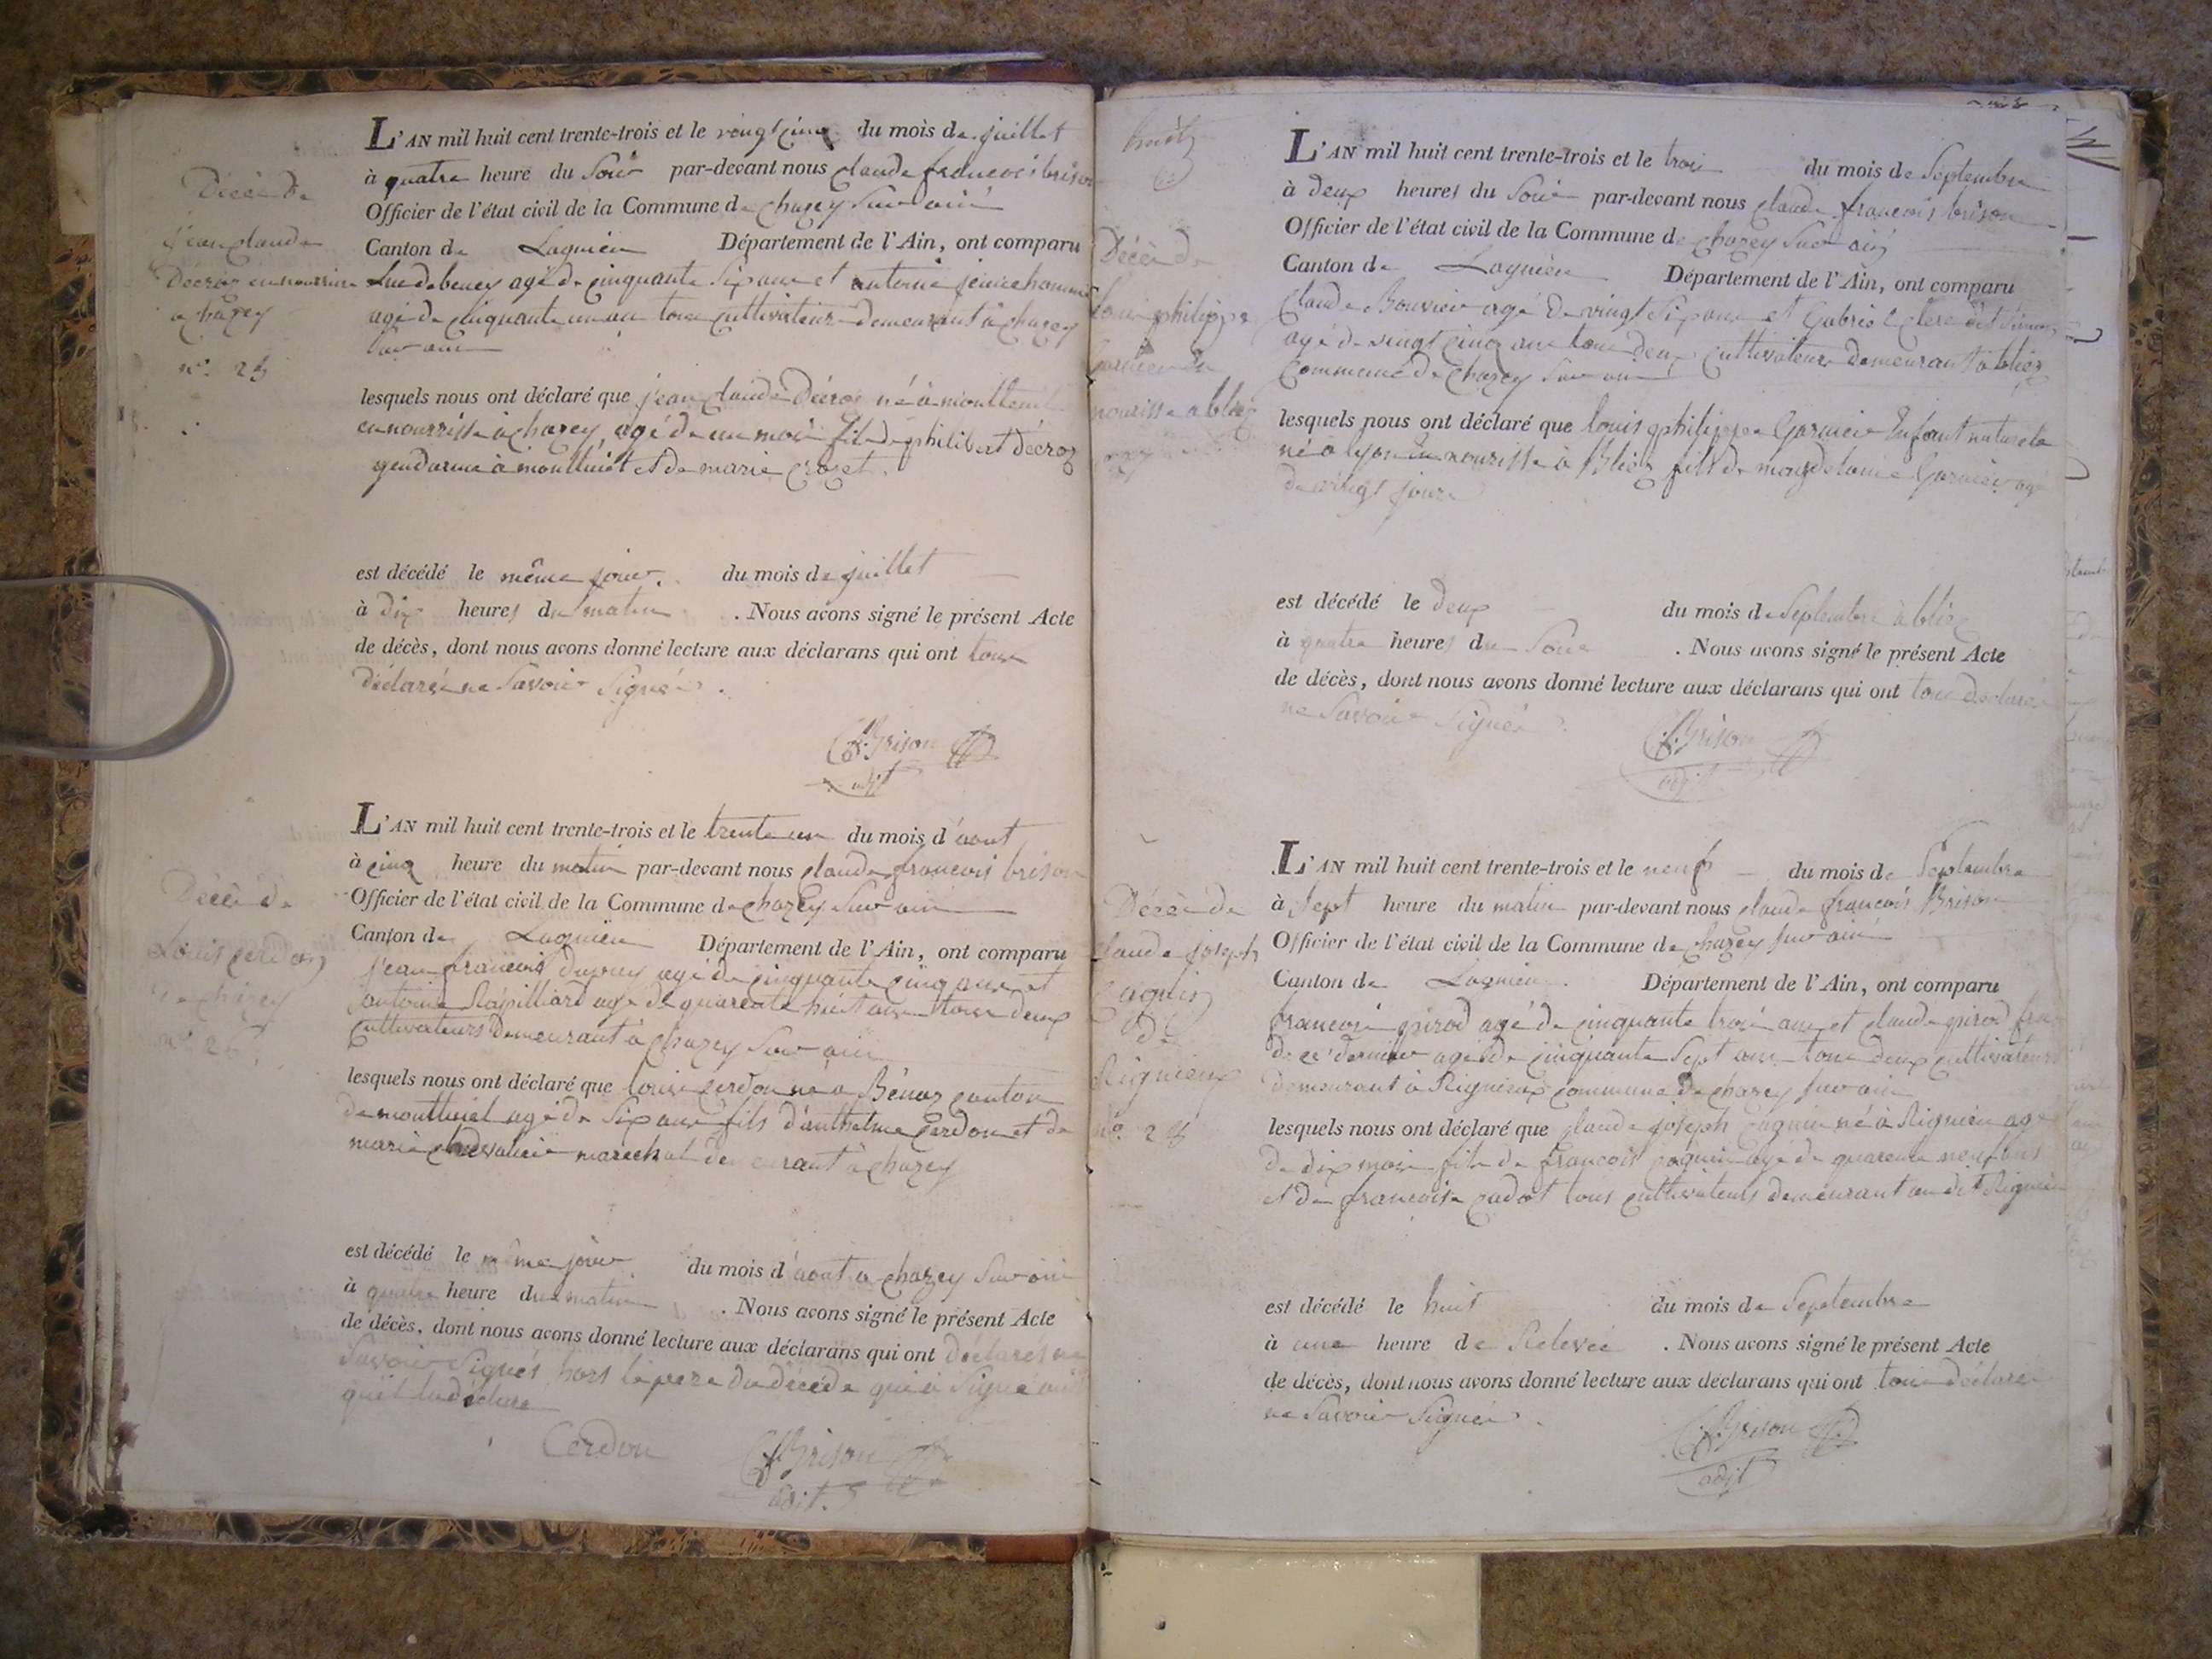 Décè de
jean claude
Décroz en nourrisse
a chazey
n.º 25
L'AN mil huit cent trente-trois et le vingt cinq du mois de juillet
à quatre heure du Soir par-devant nous claude francois brison
Officier de l'état civil de la Commune de chazey Sur ain
Canton de Lagnieu Département de l'Ain, ont comparu
Luc debeney agé de cinquante Six ans et antoine jeune homme
agé de cinquante un an tous cultivateurs demeurant à chazey
Sur ain
lesquels nous ont déclaré que jean claude Décroz né à montluel
en nourrisse à chazey, agé de un mois fils de philibert décroz
gendarme à montluel et de marie crozet.
est décédé le même jour du mois de juillet
à dix heures du matin . Nous avons signé le présent Acte
de décès, dont nous avons donné lecture aux déclarans qui ont tous
déclaré ne Savoir Signé.
C.f. Brison
adjt
Décè de
Louis cerdon
de chazey
nº 26.
L'AN mil huit cent trente-trois et le trente un du mois d'aout
à cinq heure du matin par-devant nous claude francois brison
Officier de l'état civil de la Commune de chazey Sur ain
Canton de Lagnieu Département de l'Ain, ont comparu
jean francois dupuy agé de cinquante cinq ans et
antoine Rapilliard agé de quarente huit ans tous deux
cultivateurs demeurant à chazey Sur ain
lesquels nous ont déclaré que louis cerdon né a Bénoz canton
de montluel agé de Six ans fils d'anthelme Cerdon et de
marie chevalier marechal demeurant à chazey
est décédé le même jour du mois d'aout a chazey Sur ain
à quatre heure du matin . Nous avons signé le présent Acte
de décès, dont nous avons donné lecture aux déclarans qui ont déclarés ne
Savoir Signés hors le pere du décédé qui a Signé
Cerdon C.f. Brison
adjt.
huit
Décè de
louis philippe
Garnier En
nourisse a bliez
L'AN mil huit cent trente-trois et le trois du mois de Septembre
à deux heures du Soir par-devant nous claude francois brison
Officier de l'état civil de la Commune de chazey Sur ain
Canton de Lagnieu Département de l'Ain, ont comparu
Claude Bouvier agé de vingt Six ans et Gabriel clerc dit
agé de vingt cinq ans tous deux cultivateurs demeurant à bliez
Commune de Chazey Sur ain
lesquels nous ont déclaré que louis philippe Garnier Enfant naturele
né à lyon En nourisse à Bliez fils de magdelaine Garnier agé
de vingt jours
est décédé le deux du mois de Septembre à bliez
à quatre heures du Soir . Nous avons signé le présent Acte
de décès, dont nous avons donné lecture aux déclarans qui ont tous déclarés
ne Savoir Signér.
C.f. Brison
adjt
Décè de
claude joseph
cagnin
de
Rignieux
nº. 28
L'AN mil huit cent trente-trois et le neuf du mois de Septembre
à Sept heure du matin par-devant nous claude francois Brison
Officier de l'état civil de la Commune de chazey Sur ain
Canton de Lagnieu Département de l'Ain, ont comparu
francois pirod agé de cinquante trois ans et claude pirod
de ce dernier agé de cinquante Sept ans tous deux cultivateurs
demeurant à Rignieux commune de chazey Sur ain
lesquels nous ont déclaré que claude joseph Cagnin né à Rignieu agé
de dix mois fils de francois cagnin agé de quarente neuf ans
et de francoise cadot tous cultivateurs demeurant au dit Rignieu
est décédé le huit du mois de Septembre
à une heure de Relevée . Nous avons signé le présent Acte
de décès, dont nous avons donné lecture aux déclarans qui ont tous déclaré
ne Savoir Signér.
C.f. Brison
adjt